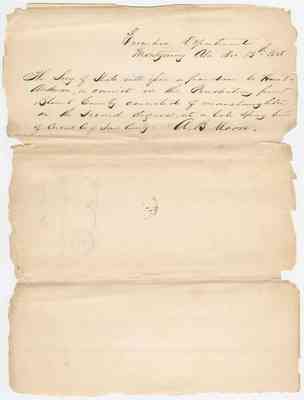 Executive Department
Montgomery Ala Dec 13th
The Secy of State will issue a pardon to
Anderson, a convict in the Penitentiary from
Blount County convicted of manslaughter
in the Second degree, at a late Spring term
of Circuit Ct of Said County. A. B. Moore.